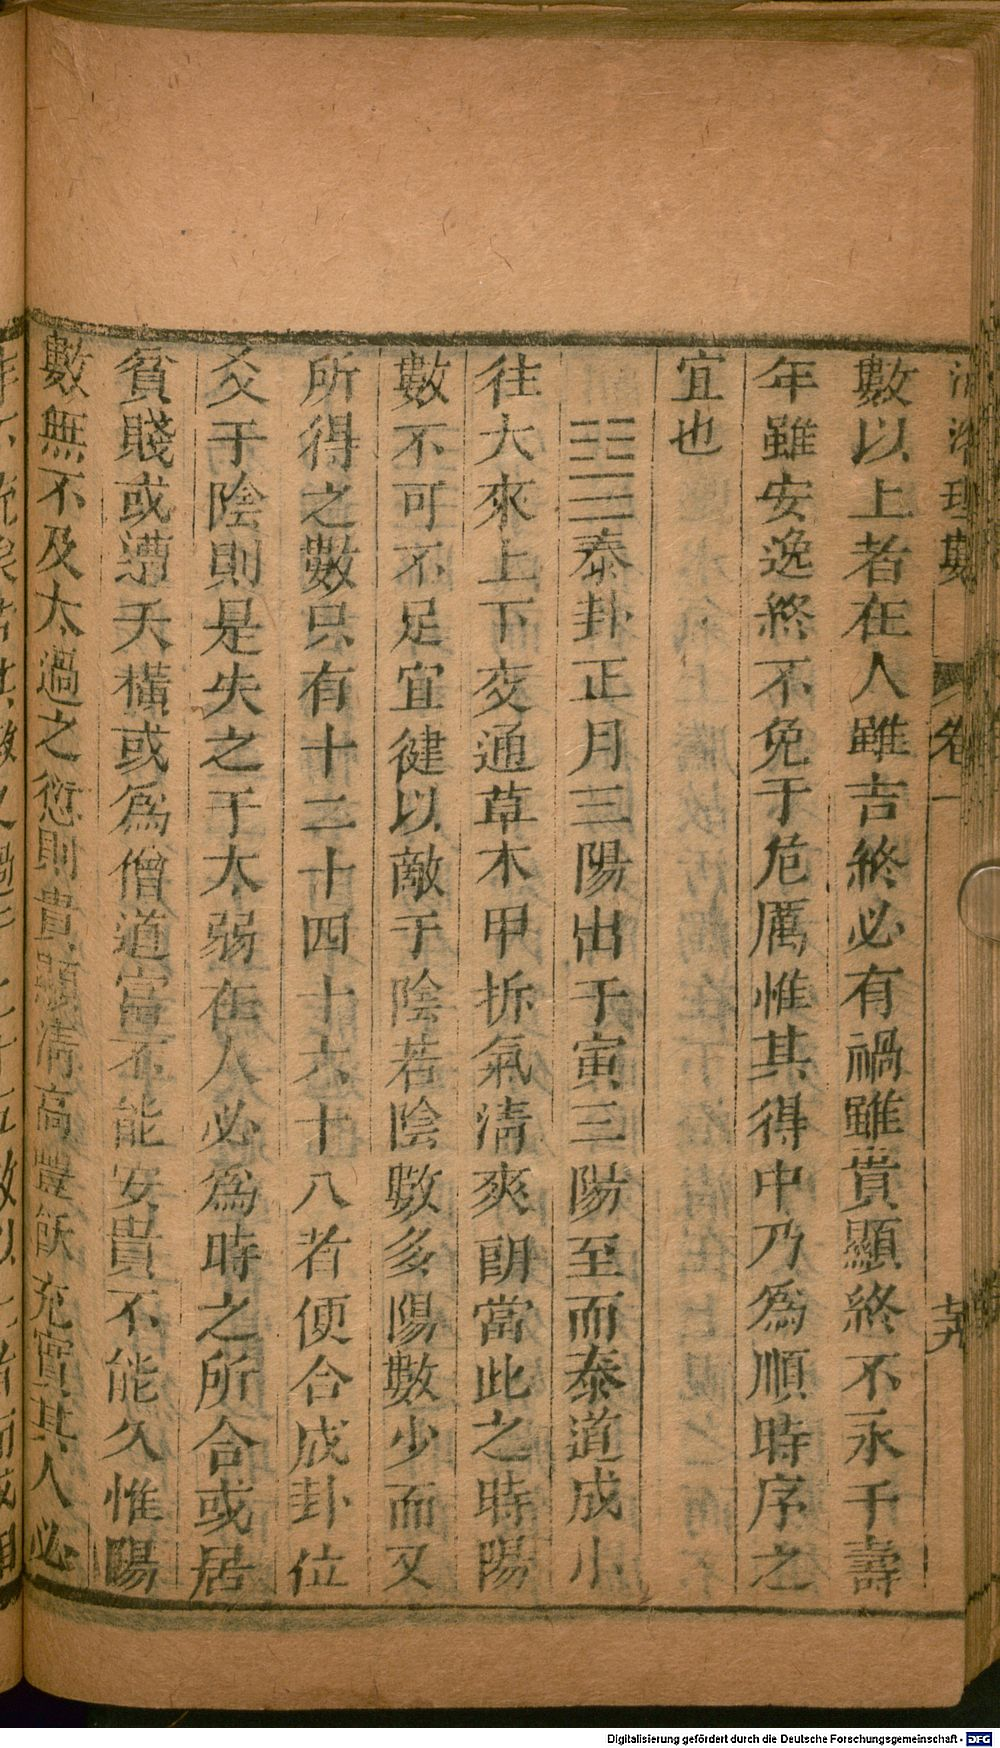 河洛理數 卷一 十九
數以上者在人雖吉終必有禍雖貴顯終不永于壽
年雖安逸終不免于危厲惟其得中乃爲順時序之
宜也
䷊泰卦正月三陽出于寅三陽至而泰道成小
往大來上下交通草木甲拆氣清爽朗當此之時陽
數不可不足宜健以敵于陰若陰數多陽數少而又
所得之數只有十二十四十六十八若便合成卦位
爻于陰則是失之于太弱在人必爲時之所合或居
貧賤或遭夭橫或爲僧道富不能安貴不能久惟陽
數無不及太過之愆則貴顯清高豐飫充實其人必
Digitalisierung gefördert durch die Deutsche Forschungsgemeinschaft - DFG